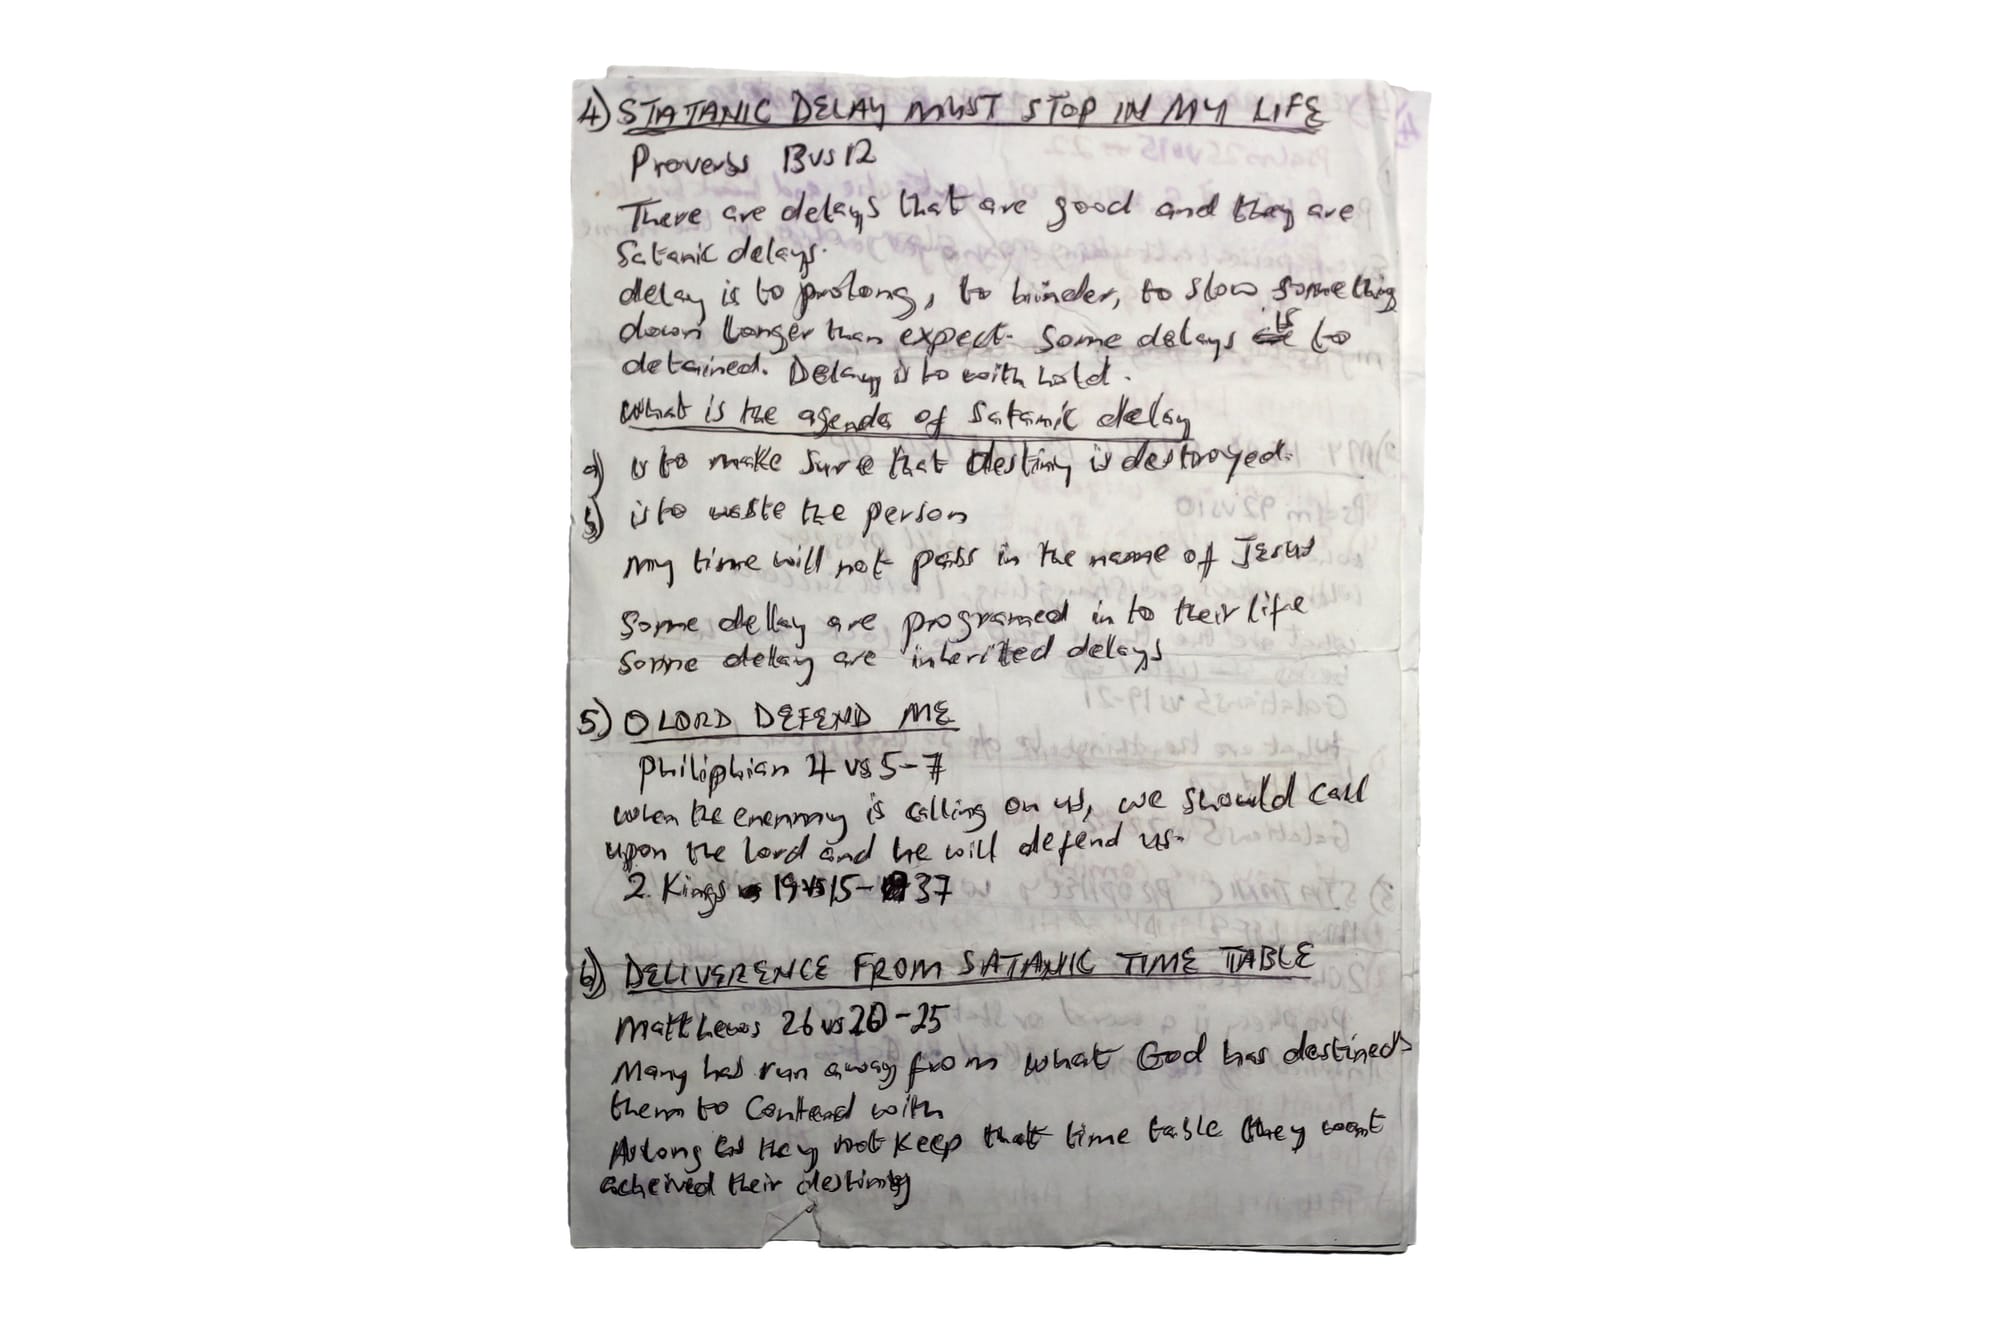 4) STATANIC DELAY MUST STOP IN MY LIFE
Proverbs 13 vs 12
There are delays that are good and they are
Satanic delays.
delay is to prolong, to hinder, to slow something
down longer than expect. Some delays is to
detained. Delay is to with hold.
What is the agenda of Satanic delay
a) is to make sure that destiny is destroyed.
b) is to waste the person
my time will not pass in the name of Jesus
Some dellay are programed in to their life
Some dellay are inherited delays
5) O LORD DEFEND ME
Philiphian 4 vs 5-7
when the enemmy is calling on us, we should call
upon the lord and he will defend us.
2 Kings 19 vs 15-37
6) DELIVERENCE FROM SATANIC TIME TABLE
Matthews 26 vs 20-25
Many has run away from what God has destined
them to Contend with
As long as they not keep that time table they wont
acheived their destiny